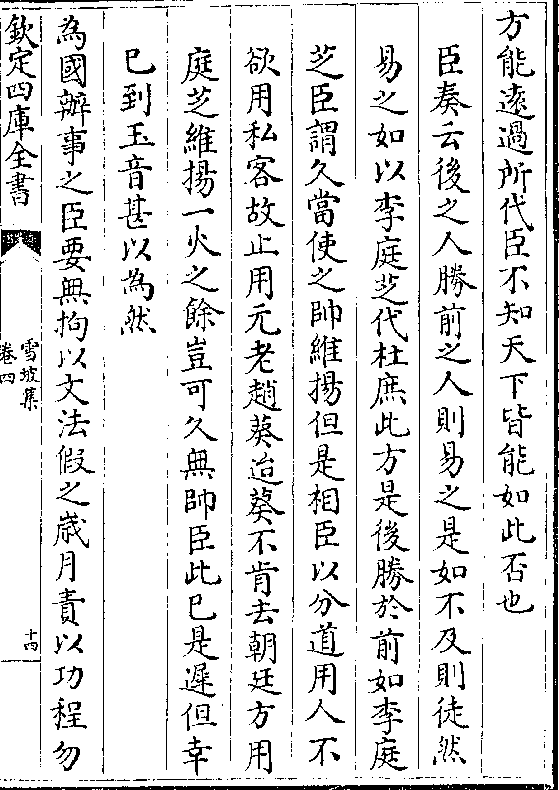 方能逺過所代臣不知天下皆能如此否也
臣奏云後之人勝前之人則易之是如不及則徒然
易之如以李庭芝代杜庶此方是後勝於前如李庭
芝臣謂久當使之帥維揚但是相臣以分道用人不
欲用私客故止用元老趙葵迨葵不肯去朝廷方用
庭芝維揚一火之餘豈可久無帥臣此已是遲但幸
已到玉音甚以為然
為國辦事之臣要無拘以文法假之嵗月責以功程勿
欽定四庫全書
雪坡集
卷四
十四